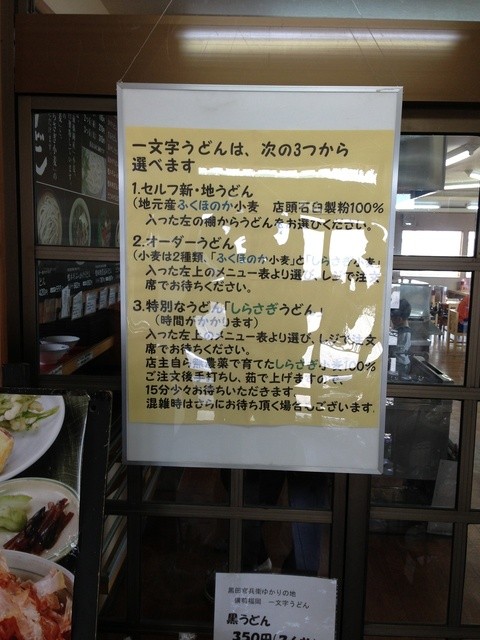 一文字うどんは、次の3つから
選べます
1.セルフ新・地うどん
(地元産ふくほのか小麦 店頭石臼製粉100%
入った左の棚からうどんをお選びください。
2.オーダーうどん
(小麦は2種類、「ふくほのか小麦」と「しらさぎ小麦」
入った左上のメニュー表より選び、レジで注文
席でお待ちください。
3.特別なうどん「しらさぎうどん」
(時間がかかります)
入った左上のメニュー表より選び、レジで注文
席でお待ちください。
店主自ら無農薬で育てたしらさぎ小麦100%
ご注文後手打ちし、茹で上げますので、
15分少々お待ちいただきます。
混雑時はさらにお待ち頂く場合もございます.
黒田官兵衛ゆかりの地
一文字うどん
黒うどん
350円